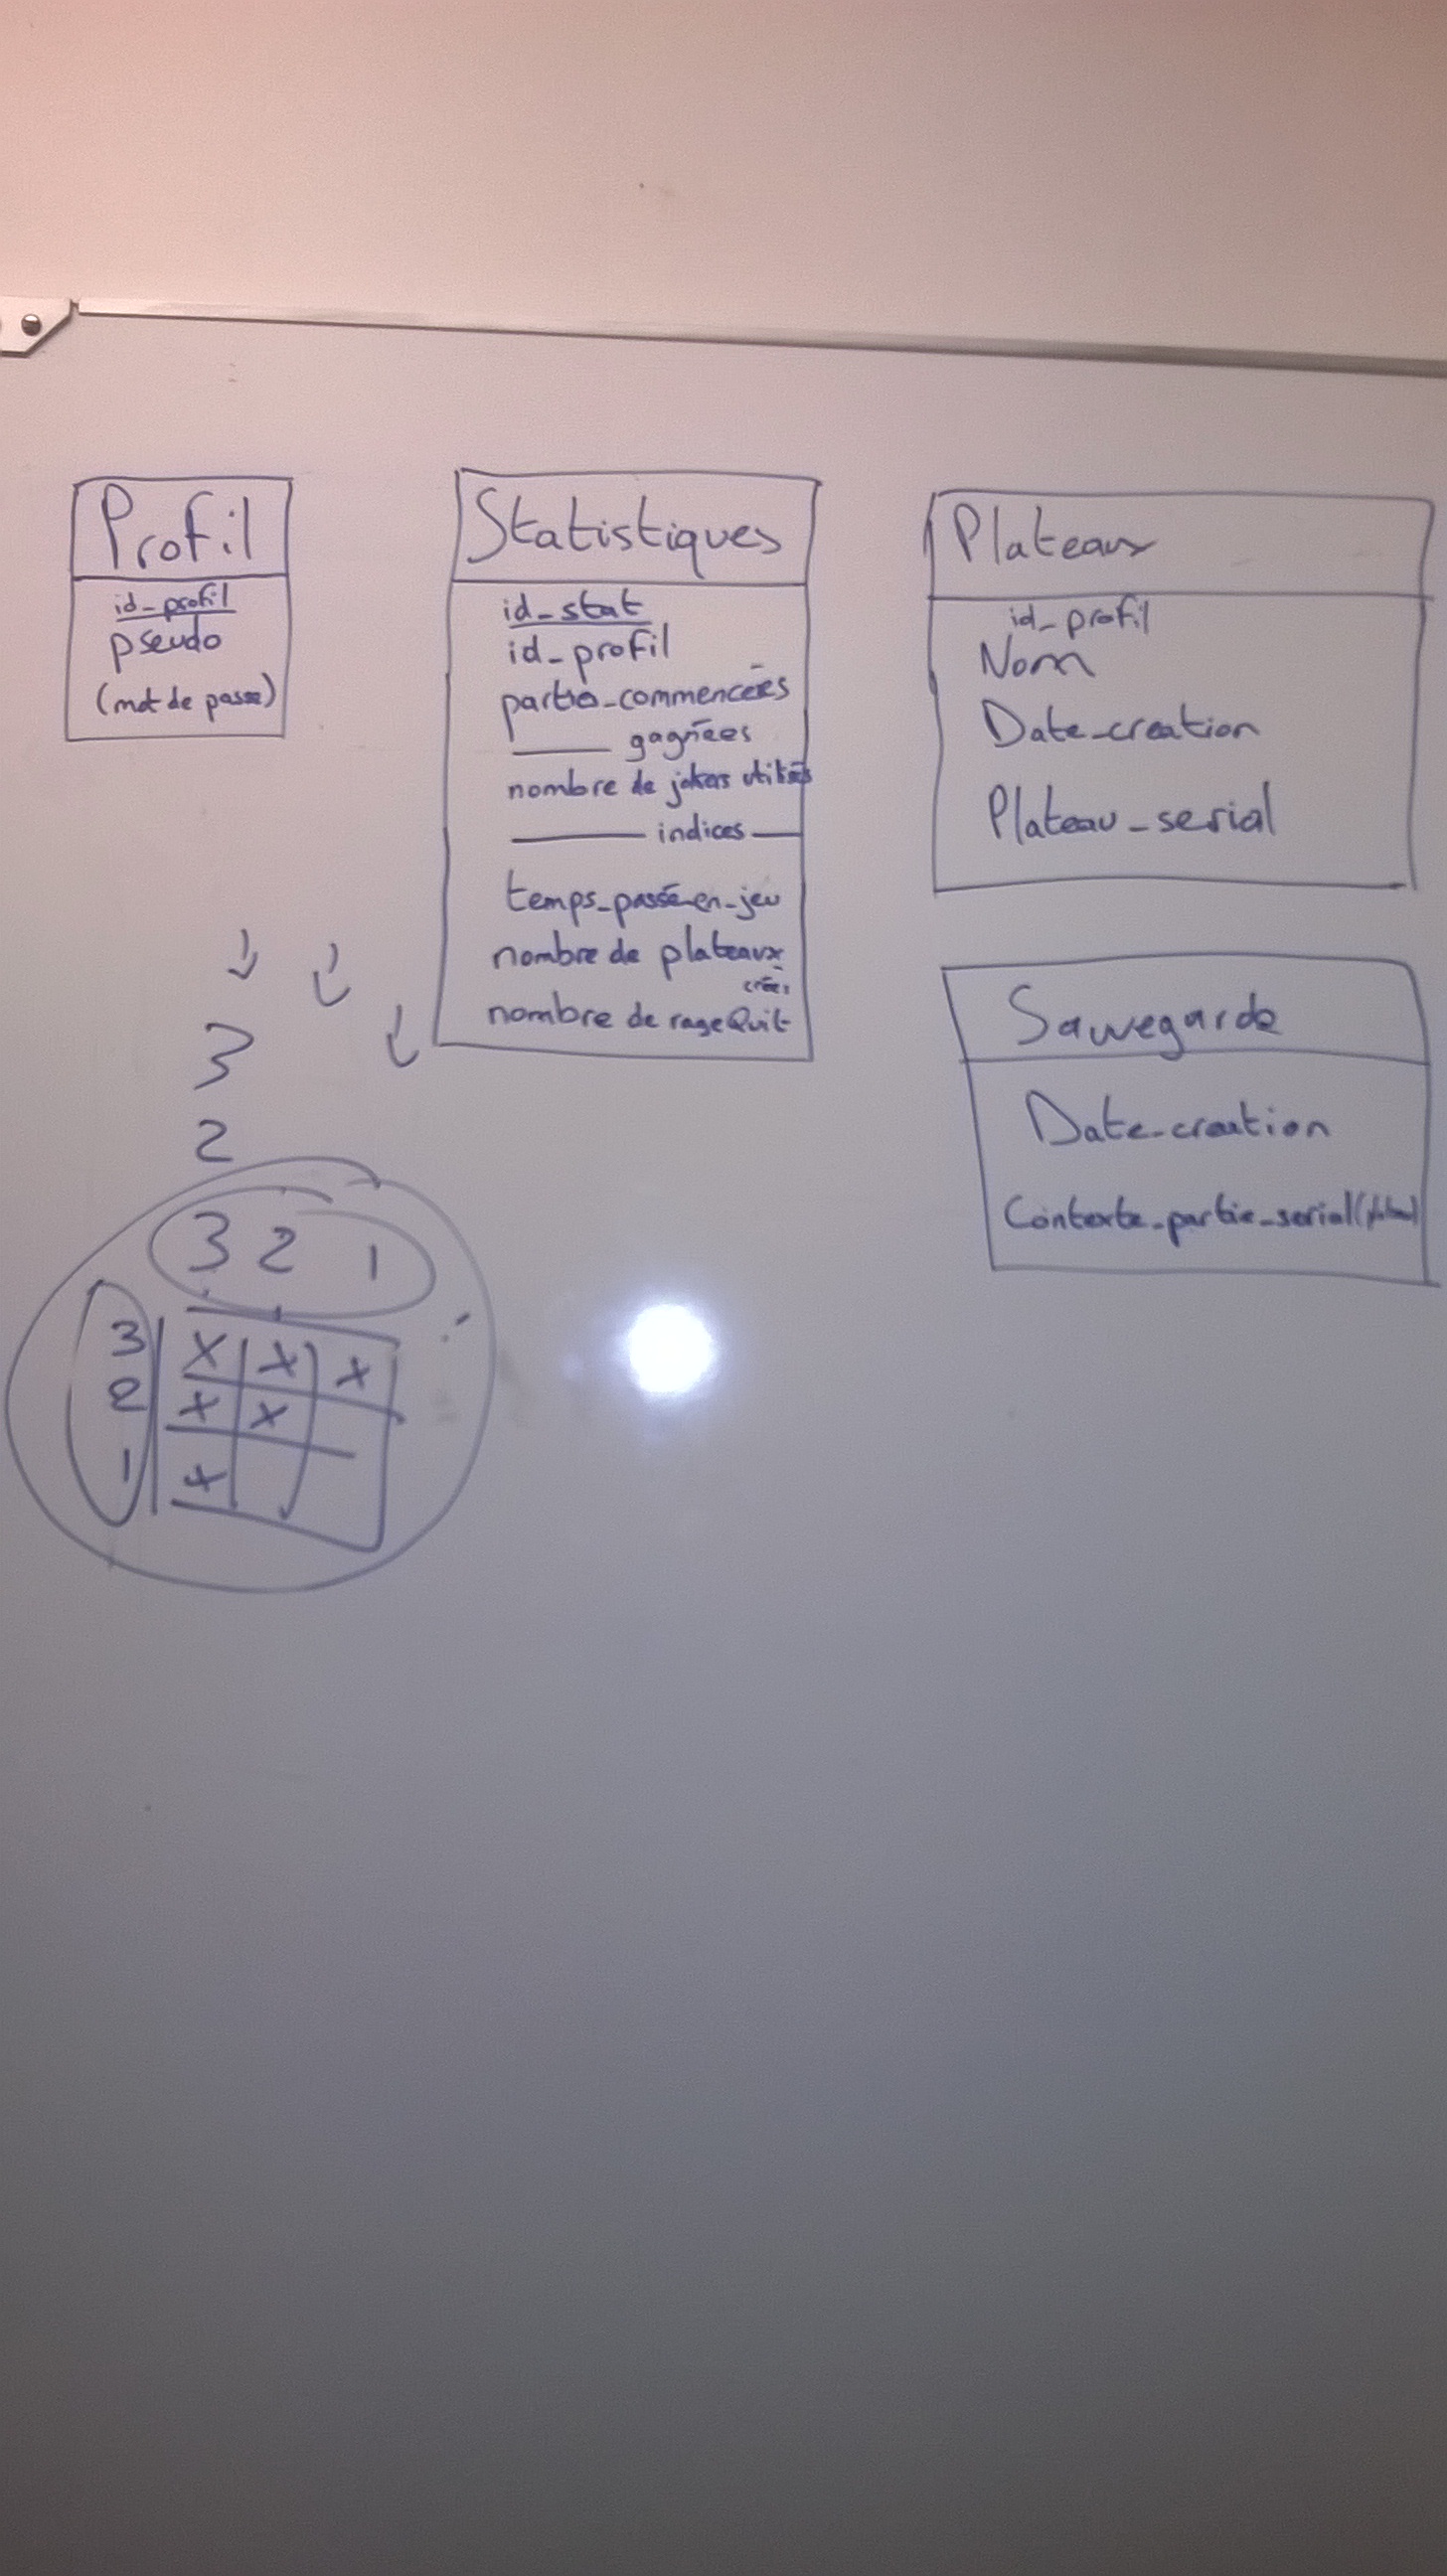 Profil
id_profil
pseudo
(mot de passe)
Statistiques
id_stat
id_profil
partie_commencées
gagnées
nombre de jokers utilisés
indices
temps_passé_en_jeu
nombre de plateaux
créés
nombre de rageQuit
Plateaux
id_profil
Nom
Date_creation
Plateau_serial
Sauvegarde
Date_creation
Contexte_partie_serial
3
2
3 2 1
3 X X X
2 X X
1 X